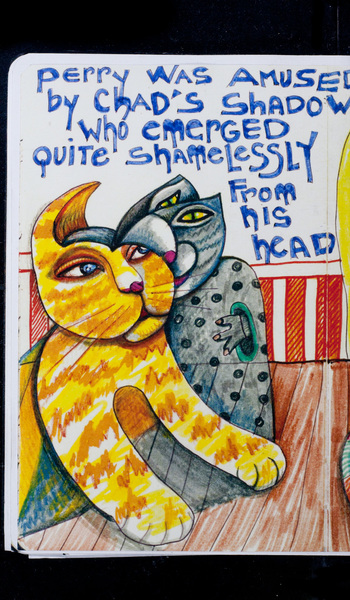 Perry was amused
by Chad's shadow
who emerged
quite shamelessly
from
his
head